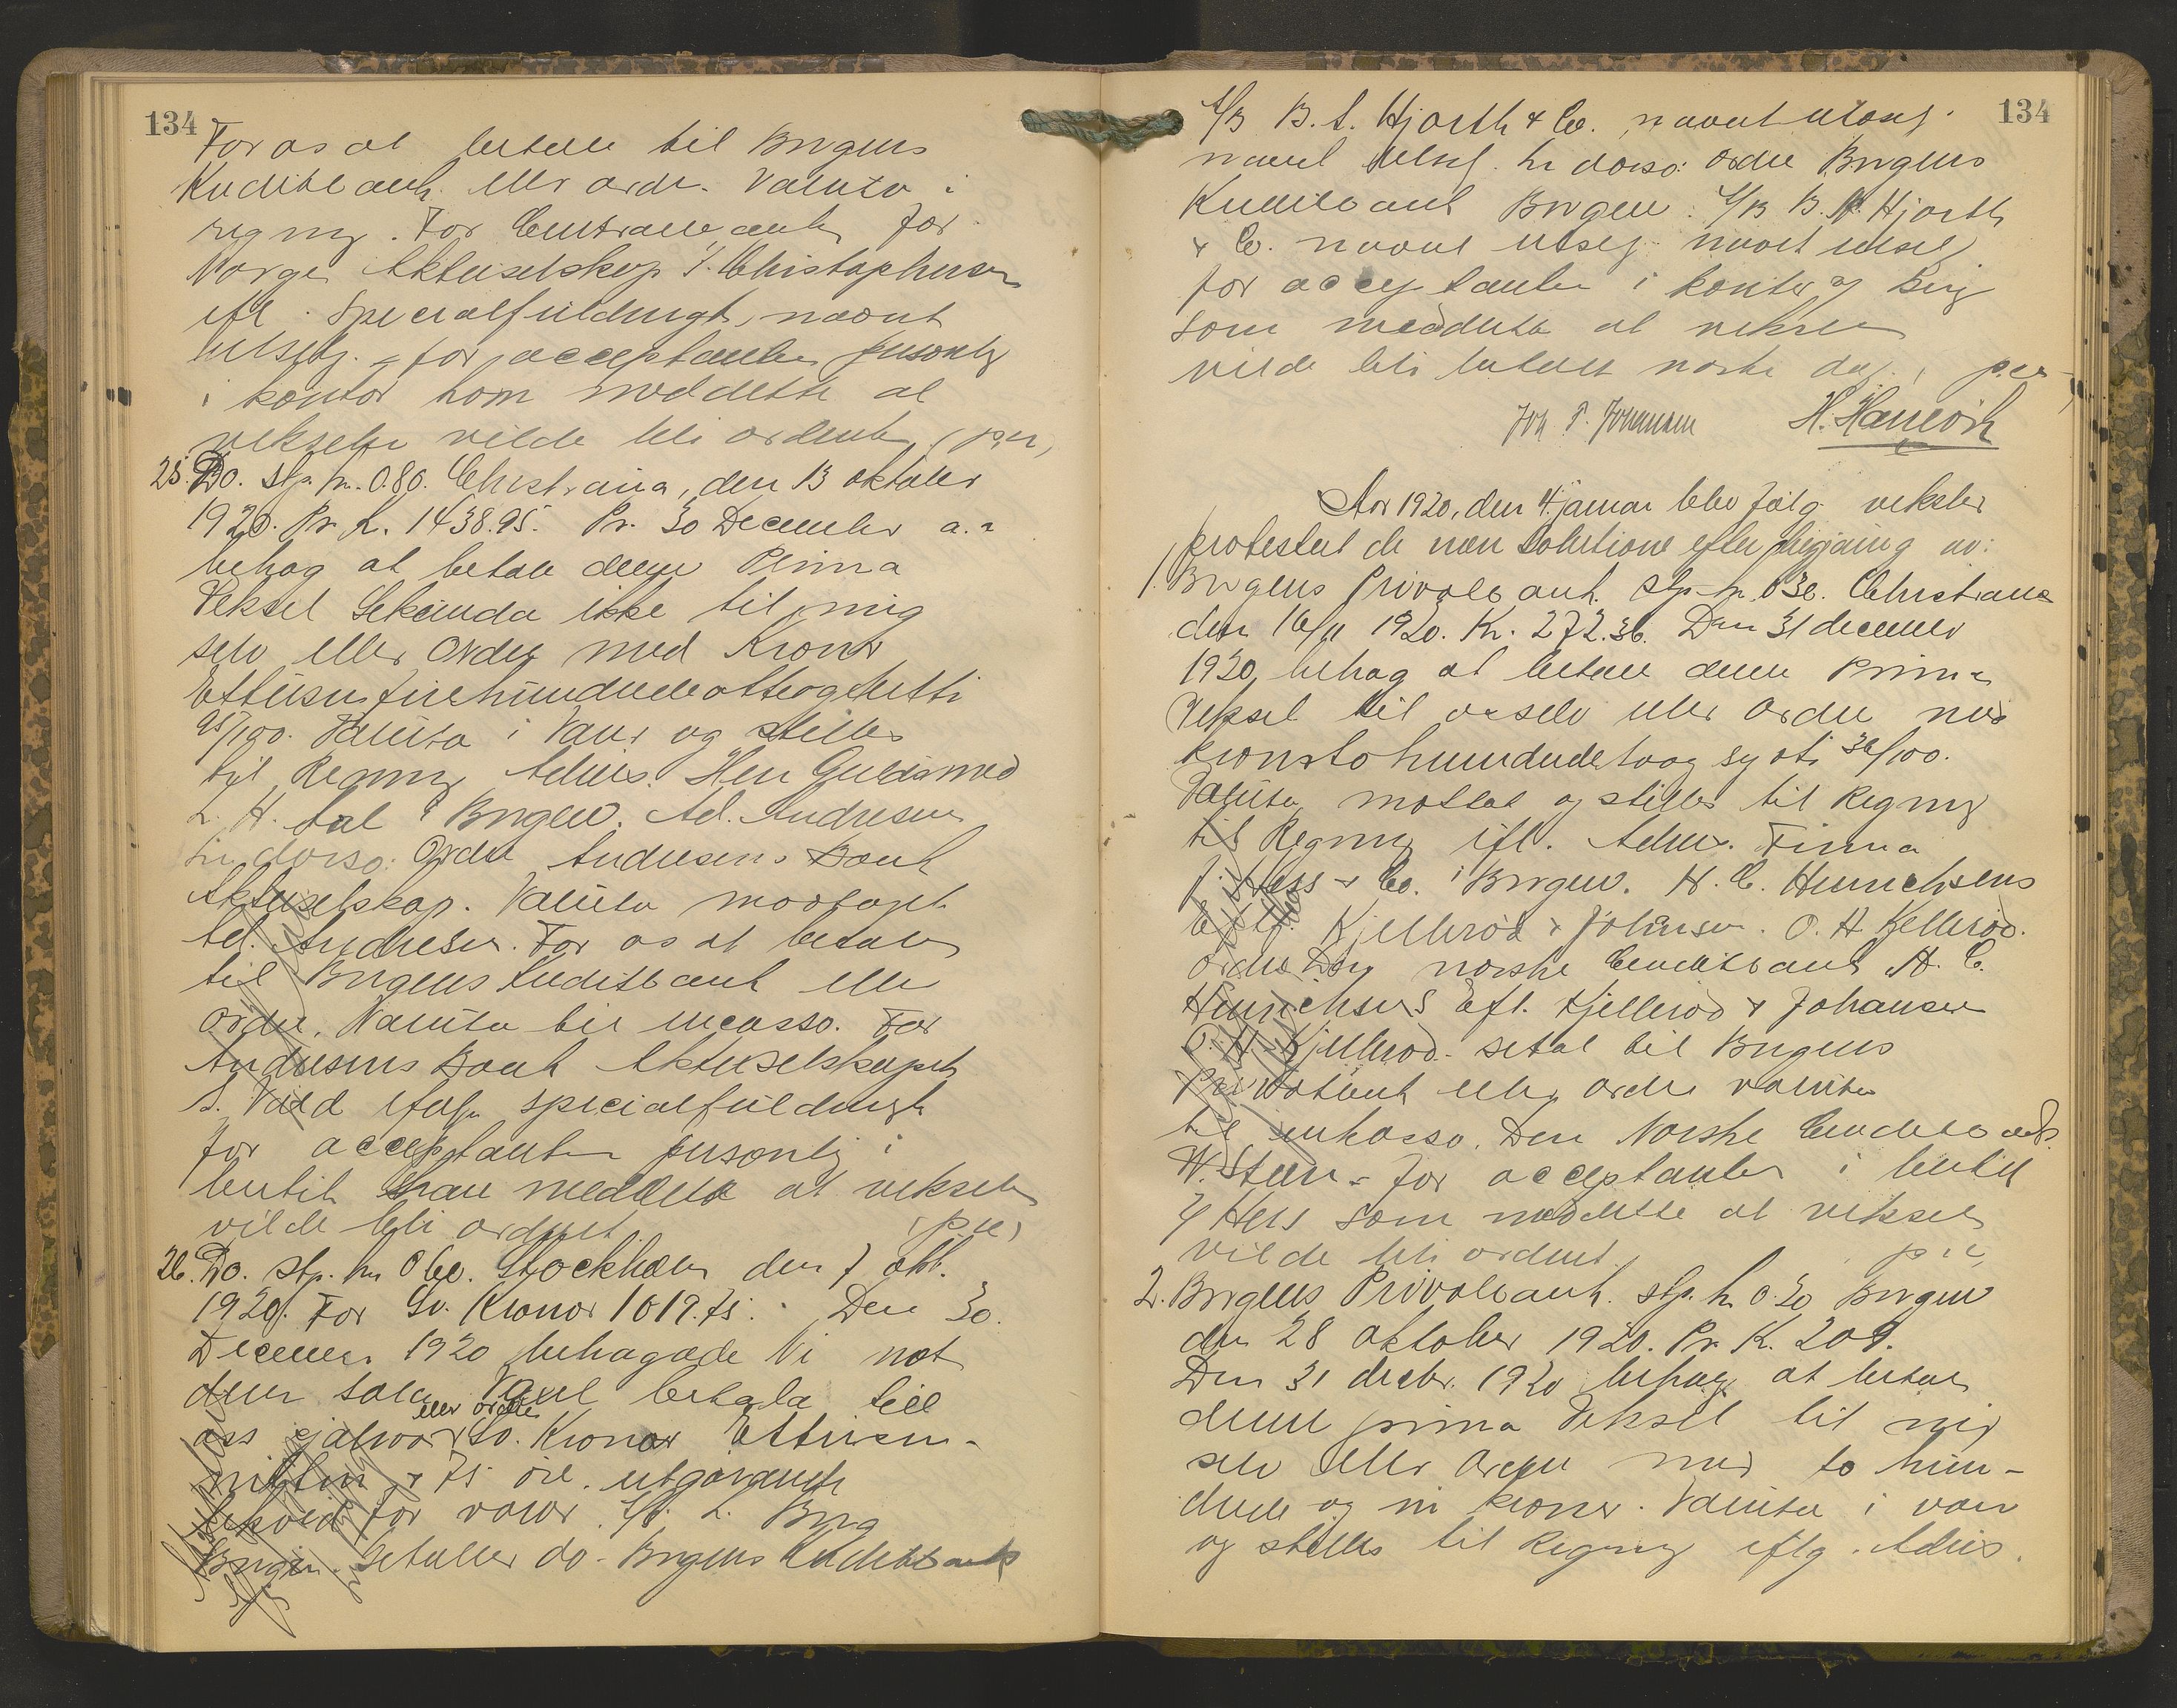 134
For os at betale til Bergens
Kreditbank eller ordre. Valuta i
regning. For Centralbanken for
Norge Aktieselskap J. Christophersen
efter Specialfuldmagt, navnt
utslg. - for acceptanten personlig
i kontor som meddelte at
vekselen vilde bli ordnet (pcu)
25. Do. stp. kr. 0.80. Christiania, den 13 oktober
1920. Pr. K. 1438.95. Pr. 30 December a.c.
behag at betale denne Prima
Veksel Sekunda ikke til mig
selv eller Ordre med Kroner
Ettusenfirehundredeotteogtretti
95/100. Valuta i Varer og stilles
til Regning Adres. Herr Guldsmed
L. H. Dal i Bergen. Ad. Andresen
In dorso: Ordre Andresens Bank
Aktieselskap. Valuta modtaget
Ad. Andresen. For os at betale
til Bergens Kreditbank eller
Ordre. Valuta til incasso. For
Andresens Bank Aktieselskapet
S. ifølge specialfuldmagt
for acceptanten personlig i
butik han meddelte at vekselen
vilde bli ordnet. (pcu)
26. Do. stp. kr. 0.60. Stockholm den 7 okt.
1920. For Sv. Kronor 1019.75. Den 30.
December 1920 behagade Ni mot
denna sola Växel betala till
eller order
oss själva Sv. Kronor Ettusen-
nitton & 75 öre. utgörande
likvid för varor. L. Berg
Bergen. betaller do - Bergens Kreditbank
134
A/B B. A. Hjorth & Co. navnt utslg.
navnt utslg. In dorso: Ordre Bergens
Kreditbank Bergen. A/B B. A. Hjorth
& Co. navnt utslg. navnt utslg.
for acceptanten i kontor og Berg
som meddelte at vekselen
vilde bli betalt næste dag. pcu
Joh. P. Johansen
Aar 1920, den 4. januar blev følg. veksler
protestert de non solutione efter begjæring av:
1. Bergens Privatbank. Stp. kr. 0.30. Christiania
den 16/11 1920. Kr. 272.36. Den 31 december
1920, behag at betale denne Prima
Veksel til os selv eller Ordre med
kroner tohundredetoogsyvti 36/100.
Valuta mottat og stilles til Regning
til Regning ifl. Adres. Firma
J. Hess & Co. i Bergen. H. C. Hinrichsens
Eftf. Kjellerød & Johansen. O. H. Kjellerød.
Ordre Den norske Creditbank H. C.
Hinrichsens Eft. Kjellerød & Johansen
O. H. Kjellerød. betal til Bergens
Privatbank eller ordre valuta
til inkasso. Den Norske Creditbank.
W. Steen - for acceptanten i butik
J Hess som meddelte at vekselen
vilde bli ordnet. pcu
2. Bergens Privatbank. stp. kr. 0.20 Bergen
den 28 oktober 1920. Pr. K. 209.
Den 31 decbr. 1920 behag at betale
denne prima Veksel til mig
selv eller Ordre med to hun-
drede og ni kroner. Valuta i varer
og stilles til Regning iflg. Adres.